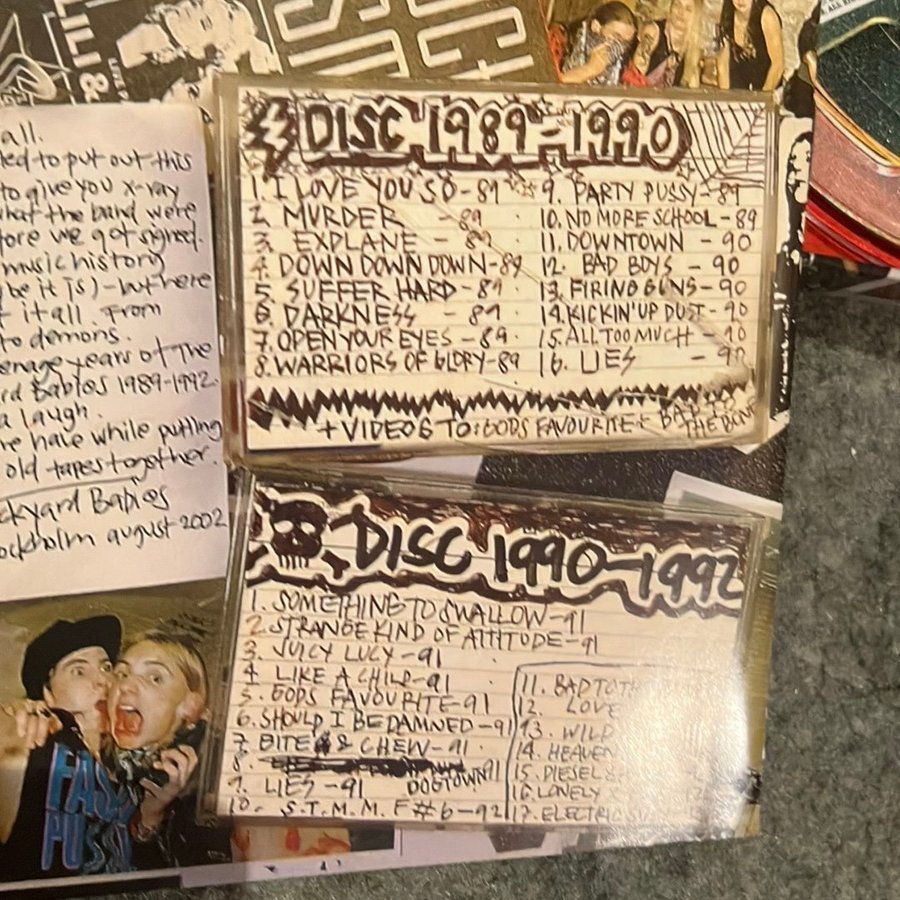 all.
led to put out this
to give you x-ray
what the band were
fore we got signed.
music history
be it is)-but here
it all. From
to demons.
enage years of the
rd Babies 1989-1992.
a laugh.
re have while putting
old tapes together.
ckyard Babies
ockholm august 2002
DISC 1989-1990
1. I LOVE YOU SO-89
2. MURDER -89
3. EXPLANE - 89
4. DOWN DOWN DOWN-89
5. SUFFER HARD-89
6. DARKNESS - 89
7. OPEN YOUR EYES -89
8. WARRIORS OF GLORY-89
9. PARTY PUSSY-89
10. NO MORE SCHOOL-89
11. DOWNTOWN - 90
12. BAD BOYS - 90
13. FIRING GUNS-90
14. KICKIN' UP DUST-90
15. ALL TOO MUCH -90
16. LIES - 90
+ VIDEOS TO: GODS FAVOURITE + BAD TO THE BONE
DISC 1990-1992
1. SOMETHING TO SWALLOW-91
2. STRANGE KIND OF ATTITUDE-91
3. JUICY LUCY-91
4. LIKE A CHILD-91
5. GODS FAVOURITE-91
6. SHOULD I BE DAMNED-91
7. BITE & CHEW-91
8. DOGTOWN 91
9. LIES -91
10. S.T.M.M.F #6-92
11. BAD TO TH
12. LOVE
13. WILD
14. HEAVEN
15. DIESEL &
16. LONELY
17. ELECTRIC
FAS
PUSS